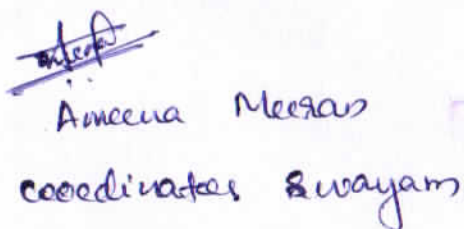 Ameena Meeran
coordinator, Swayam